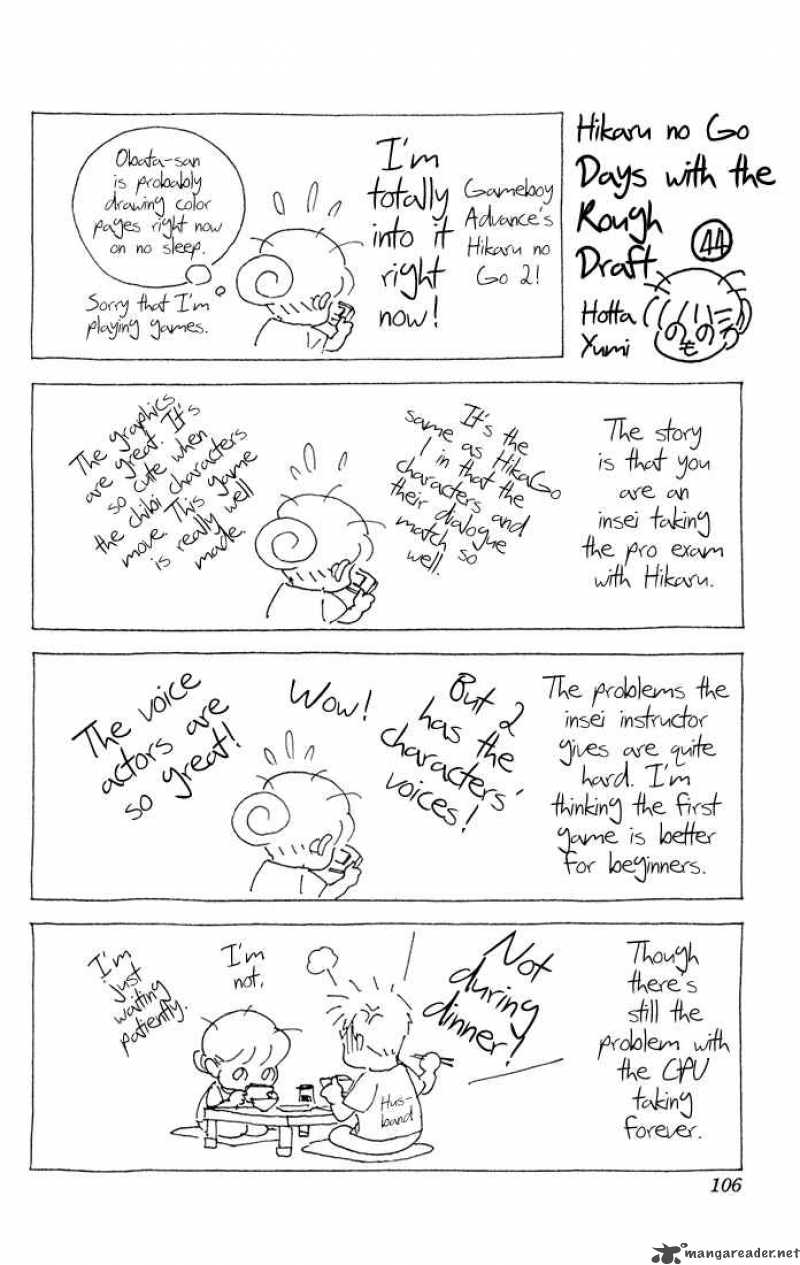 Hikaru no Go
Days with the
Rough
Draft
44
Hotta
Yumi
Gameboy
Advance's
Hikaru no
Go 2!
I'm
totally
into it
right
now!
Obata-san
is probably
drawing color
pages right now
on no sleep.
Sorry that I'm
playing games.
The story
is that you
are an
insei taking
the pro exam
with Hikaru.
It's the
same as HikaGo
1 in that the
characters and
their dialogue
match so
well.
The graphics
are great. It's
so cute when
the chibi characters
move. This game
is really well
made
The problems the
insei instructor
gives are quite
hard. I'm
thinking the first
game is better
for beginners.
But 2
has the
characters'
voices!
Wow!
The voice
actors are
so great!
Though
there's
still the
problem with
the CPU
taking
forever.
Not
during
dinner!
I'm
not.
I'm
just
waiting
patiently.
Hus-
band
106
mangareader.net